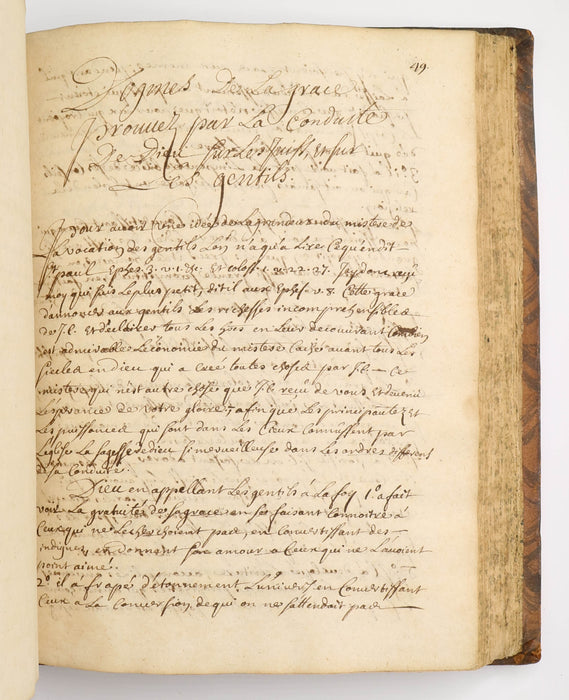 49.
Dogmes De La grace
prouuez par La Conduitte
De Dieu sur Les Juifs, Et sur
Les gentils.
pour auoir une idée de La grandeur du mistere de
La vocation des gentils Lon n'a qu'a Lire Ce qu'en dit
St paul Ephes. 3. v. 1. &c. Et coloss. 1. v. 22. 27. Jay donc reçu
moy qui suis Le plus petit, dit il aux Ephes. v. 8. Cette grace
dannoncer aux gentils Les richesses incomprehensibles
de J. C. Et declairer tous Les hoes en Leur decouurant
est admirable L'economie du mistere Caché auant tous Les
siecles en dieu qui a Creé toutes choses par J. C. — Ce
mistere qui n'est autre chose que J. C. reçu de vous Et deuenu
Lesperance de votre gloire, afinque Les principautez Et
Les puissances qui sont dans Les Cieux Connussent par
L'eglise La sagesse de dieu si merueilleuse dans Les ordres differens
de sa Conduite.
Dieu en appellant Les gentils á La foy 1.º a fait
voir La gratuité de sa grace en se faisant Connoitre á
Ceux qui ne Le cherchoient pas, en Conuertissant des —
indignes, en donnant son amour a Ceux qui ne L'auoient
point aimé.
2º il á frapé d'étonnement L'univers en Convertissant
Ceux á La Conuersion de qui on ne s'attendoit pas —